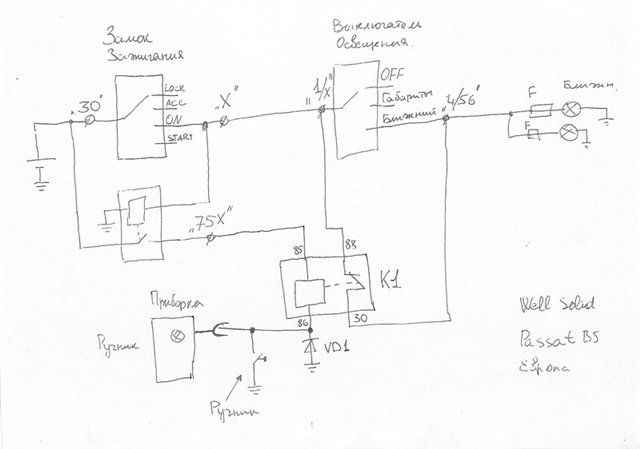 Замок
Зажигания
Выключатель
Освещения.
„30"
LOCK
ACC
ON
START
„X"
„1/X"
OFF
Габариты
Ближний
„4/56"
F
Ближн.
F
„75X"
85
88
K1
86
30
VD1
Приборка
Ручник
Ручник
Well Solid
Passat B5
Европа